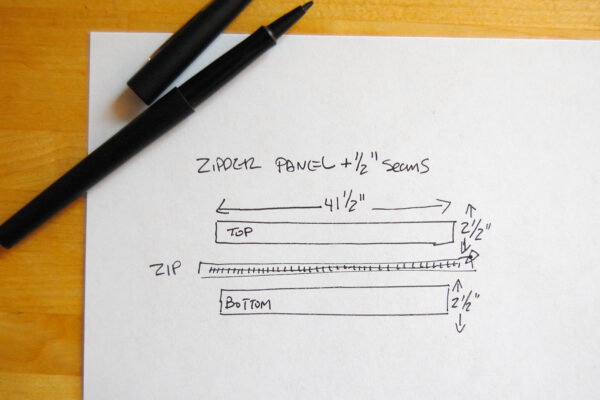 ZIPPER PANEL + 1/2" Seams
41 1/2"
TOP
2 1/2"
ZIP
BOTTOM
2 1/2"